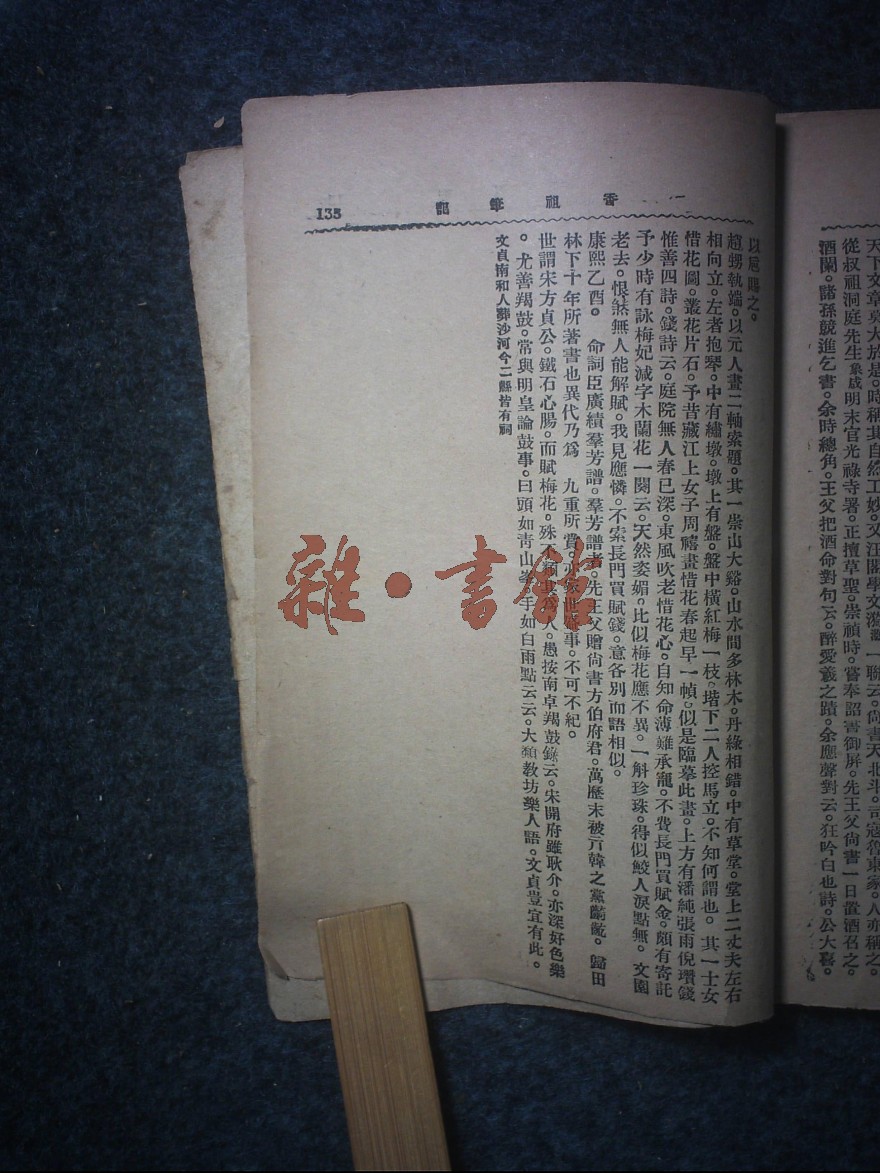 天下文章莫大於是。時稱其自然工妙。又汪閣學文漪一聯云。尚書天北斗。司寇魯東家。人亦稱之。
從叔祖洞庭先生象咸明末官光祿寺署。正擅草聖。崇禎時。嘗奉詔書御屏。先王父尚書一日置酒召之。
酒闌。諸孫競進乞書。余時總角。王父把酒命對句云。醉愛羲之蹟。余應聲對云。狂吟白也詩。公大喜。
香祖筆記
135
以扇賜之。
趙甥執端。以元人畫二軸索題。其一崇山大谿。山水間多林木。丹綠相錯。中有草堂。堂上二丈夫左右
相向立。左者抱琴。中有繡墩。墩上有盤。盤中橫紅梅一枝。堦下二人控馬立。不知何謂也。 其一士女
惜花圖。叢花片石。予昔藏江上女子周禧畫惜花春起早一幀。似是臨摹此畫。上方有潘純張雨倪瓚錢
惟善四詩。錢詩云。庭院無人春已深。東風吹老惜花心。自知命薄難承寵。不費長門買賦金。頗有寄託
予少時有詠梅妃減字木蘭花一闋云。天然姿媚。比似梅花應不異。一斛珍珠。得似鮫人淚點無。 文園
老去。恨煞無人能解賦。我見應憐。不索長門買賦錢。意各別而語相似。
康熙乙酉。 命詞臣廣續羣芳譜。羣芳譜者。先王父贈尚書方伯府君。萬歷末被亓韓之黨齮齕。歸田
林下十年所著書也異代乃爲 九重所賞。亦家世盛事。不可不紀。
世謂宋方貞公。鐵石心腸。而賦梅花。殊不類其爲人。愚按南卓羯鼓錄云。宋開府雖耿介。亦深好色樂
。尤善羯鼓。常與明皇論鼓事。曰頭如青山峯。手如白雨點云云。大類教坊樂人語。文貞豈宜有此。
文貞南和人葬沙河今二縣皆有祠
雜·書館